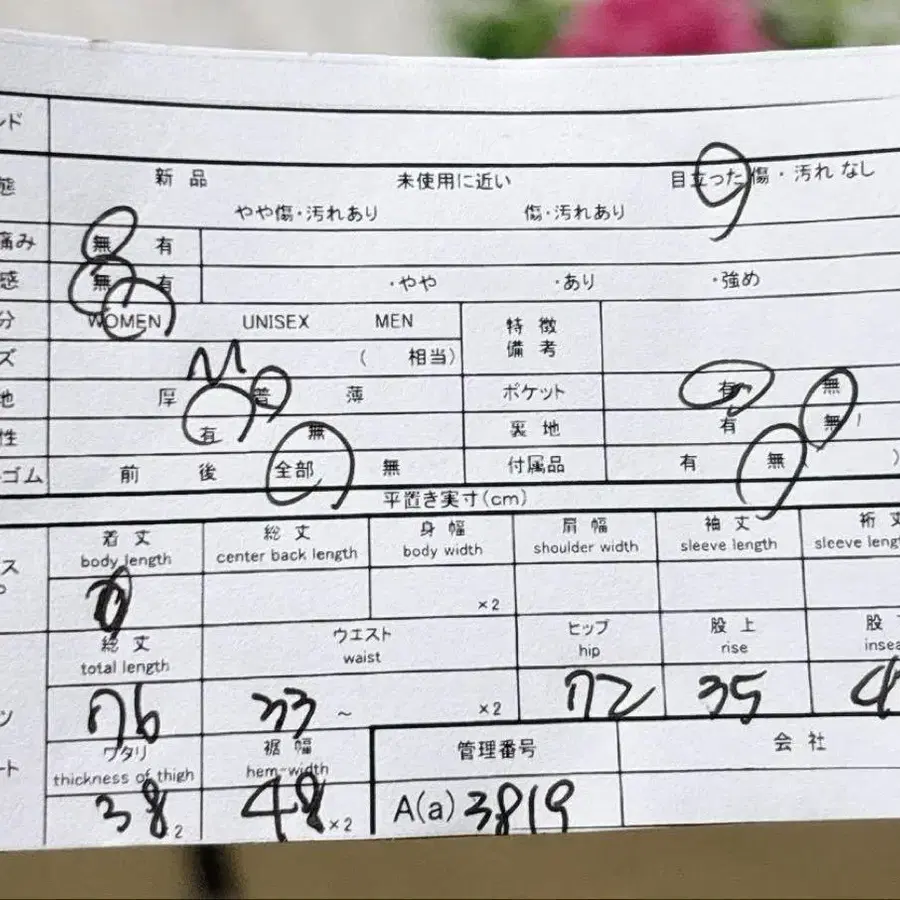 ンド
態 新品 未使用に近い 目立った傷・汚れなし
やや傷・汚れあり 傷・汚れあり
痛み 無 有
感 無 有 ・やや ・あり ・強め
分 WOMEN UNISEX MEN 特徴
備考
ズ M ( 相当)
地 厚 普 薄 ポケット 有 無
性 有 無 裏地 有 無
ゴム 前 後 全部 無 付属品 有 無 )
平置き実寸(cm)
着丈 総丈 身幅 肩幅 袖丈 裄丈
body length center back length body width shoulder width sleeve length sleeve leng
×2
総丈 ウエスト ヒップ 股上 股
total length waist hip rise insea
76 33 ~ ×2 72 35
ワタリ 裾幅 管理番号 会社
thickness of thigh hem-width
38 2 48 ×2 A(a) 3819